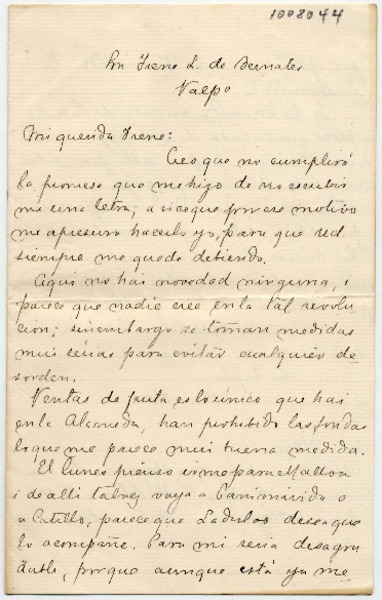 1008044
Sra Irene L. de Bernales
Valpo
Mi querida Irene:
Creo que no cumplirá
la promesa que me hizo de no escribir
me una letra, a si es que por ese motivo
me apresuro hacerlo yo, para que Ud
siempre me quede debiendo.
Aqui no hai novedad ninguna, i
parece que nadie cree en la tal revolu
cion; sin embargo se toman medidas
mui sérias para evitar cualquier de-
sorden.
Ventas de fruta es lo único que hai
en la Alameda, han prohibido las fondas
lo que me parece mui buena medida.
El lunes pienso irme para Malloa
i de alli talvez vaya a Panimávida o
a Catillo, parece que Ladislao desea que
lo acompañe. Para mi seria desagra
dable, porque aunque está ya me-